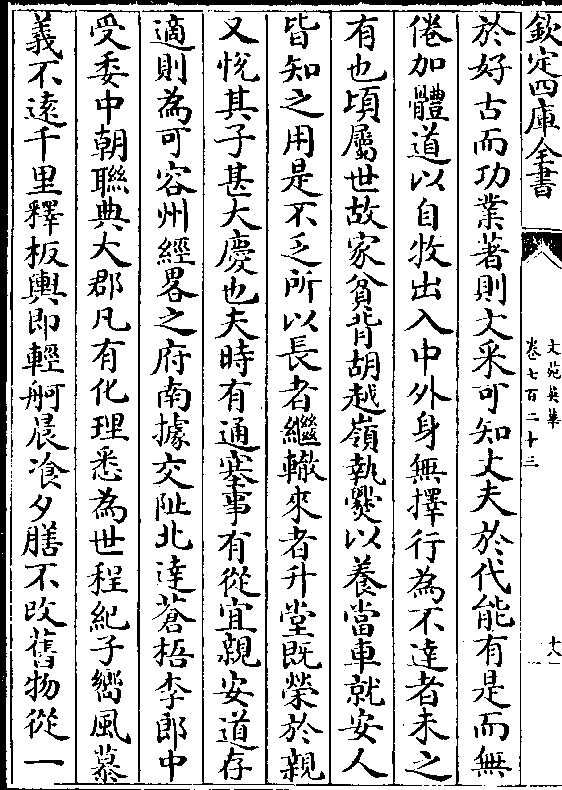 欽定四庫全書
文苑英華
卷七百二十三
十八
於好古而功業著則文采可知丈夫於代能有是而無
倦加體道以自牧出入中外身無擇行為不達者未之
有也頃屬世故家貧背胡越嶺執爨以養當車就安人
皆知之用是不乏所以長者繼轍來者升堂既榮於親
又悅其子甚大慶也夫時有通塞事有從宜親安道存
適則為可容州經畧之府南據交阯北達蒼梧李郎中
受委中朝聯典大郡凡有化理悉為世程紀子嚮風慕
義不遠千里釋板輿即輕舸晨飡夕膳不改舊物從一